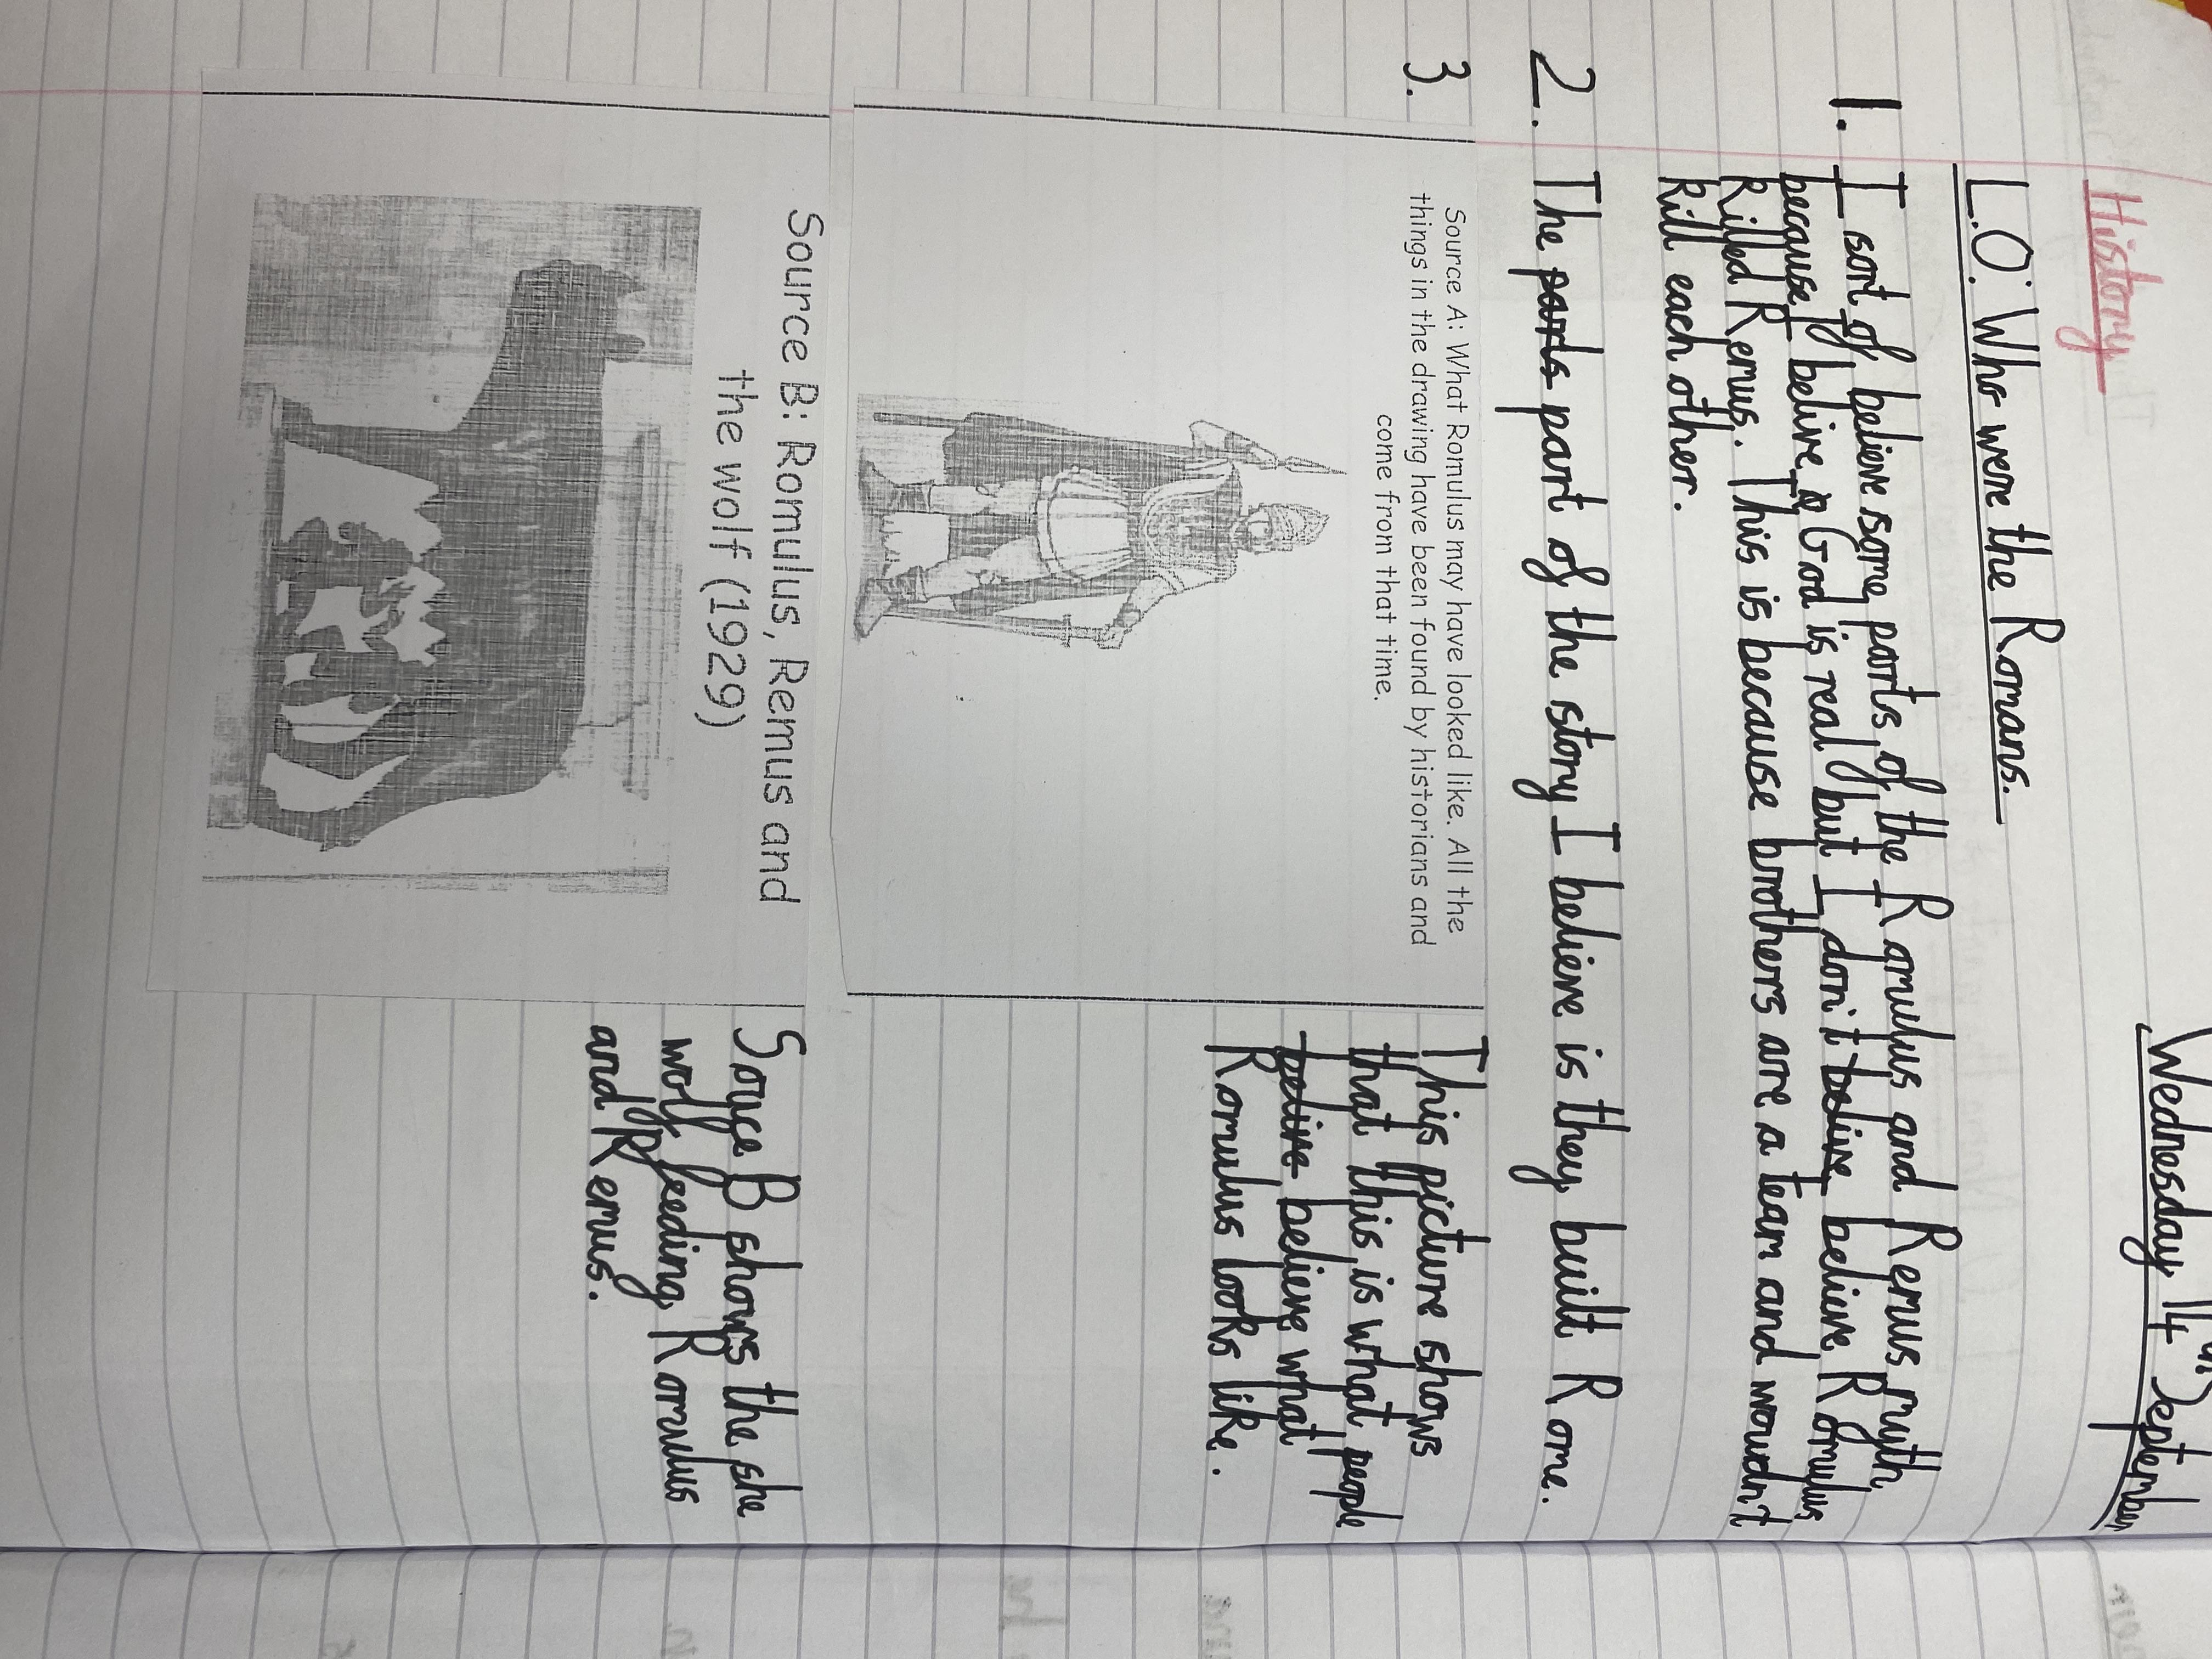 Wednesday 14th September
History
L.O: Who were the Romans.
1. I sort of believe some parts of the Romulus and Remus myth
because I belive God is real but I don't belive believe Romulus
Killed Remus. This is because brothers are a team and woudn't
kill each other.
2. The parts part of the story I believe is they built Rome.
3.
Source A: What Romulus may have looked like. All the
things in the drawing have been found by historians and
come from that time.
This picture shows
that this is what people
belive believe what
Romulus looks like.
Source B: Romulus, Remus and
the wolf (1929)
Souce B shows the she
wolf feeding Romulus
and Remus.